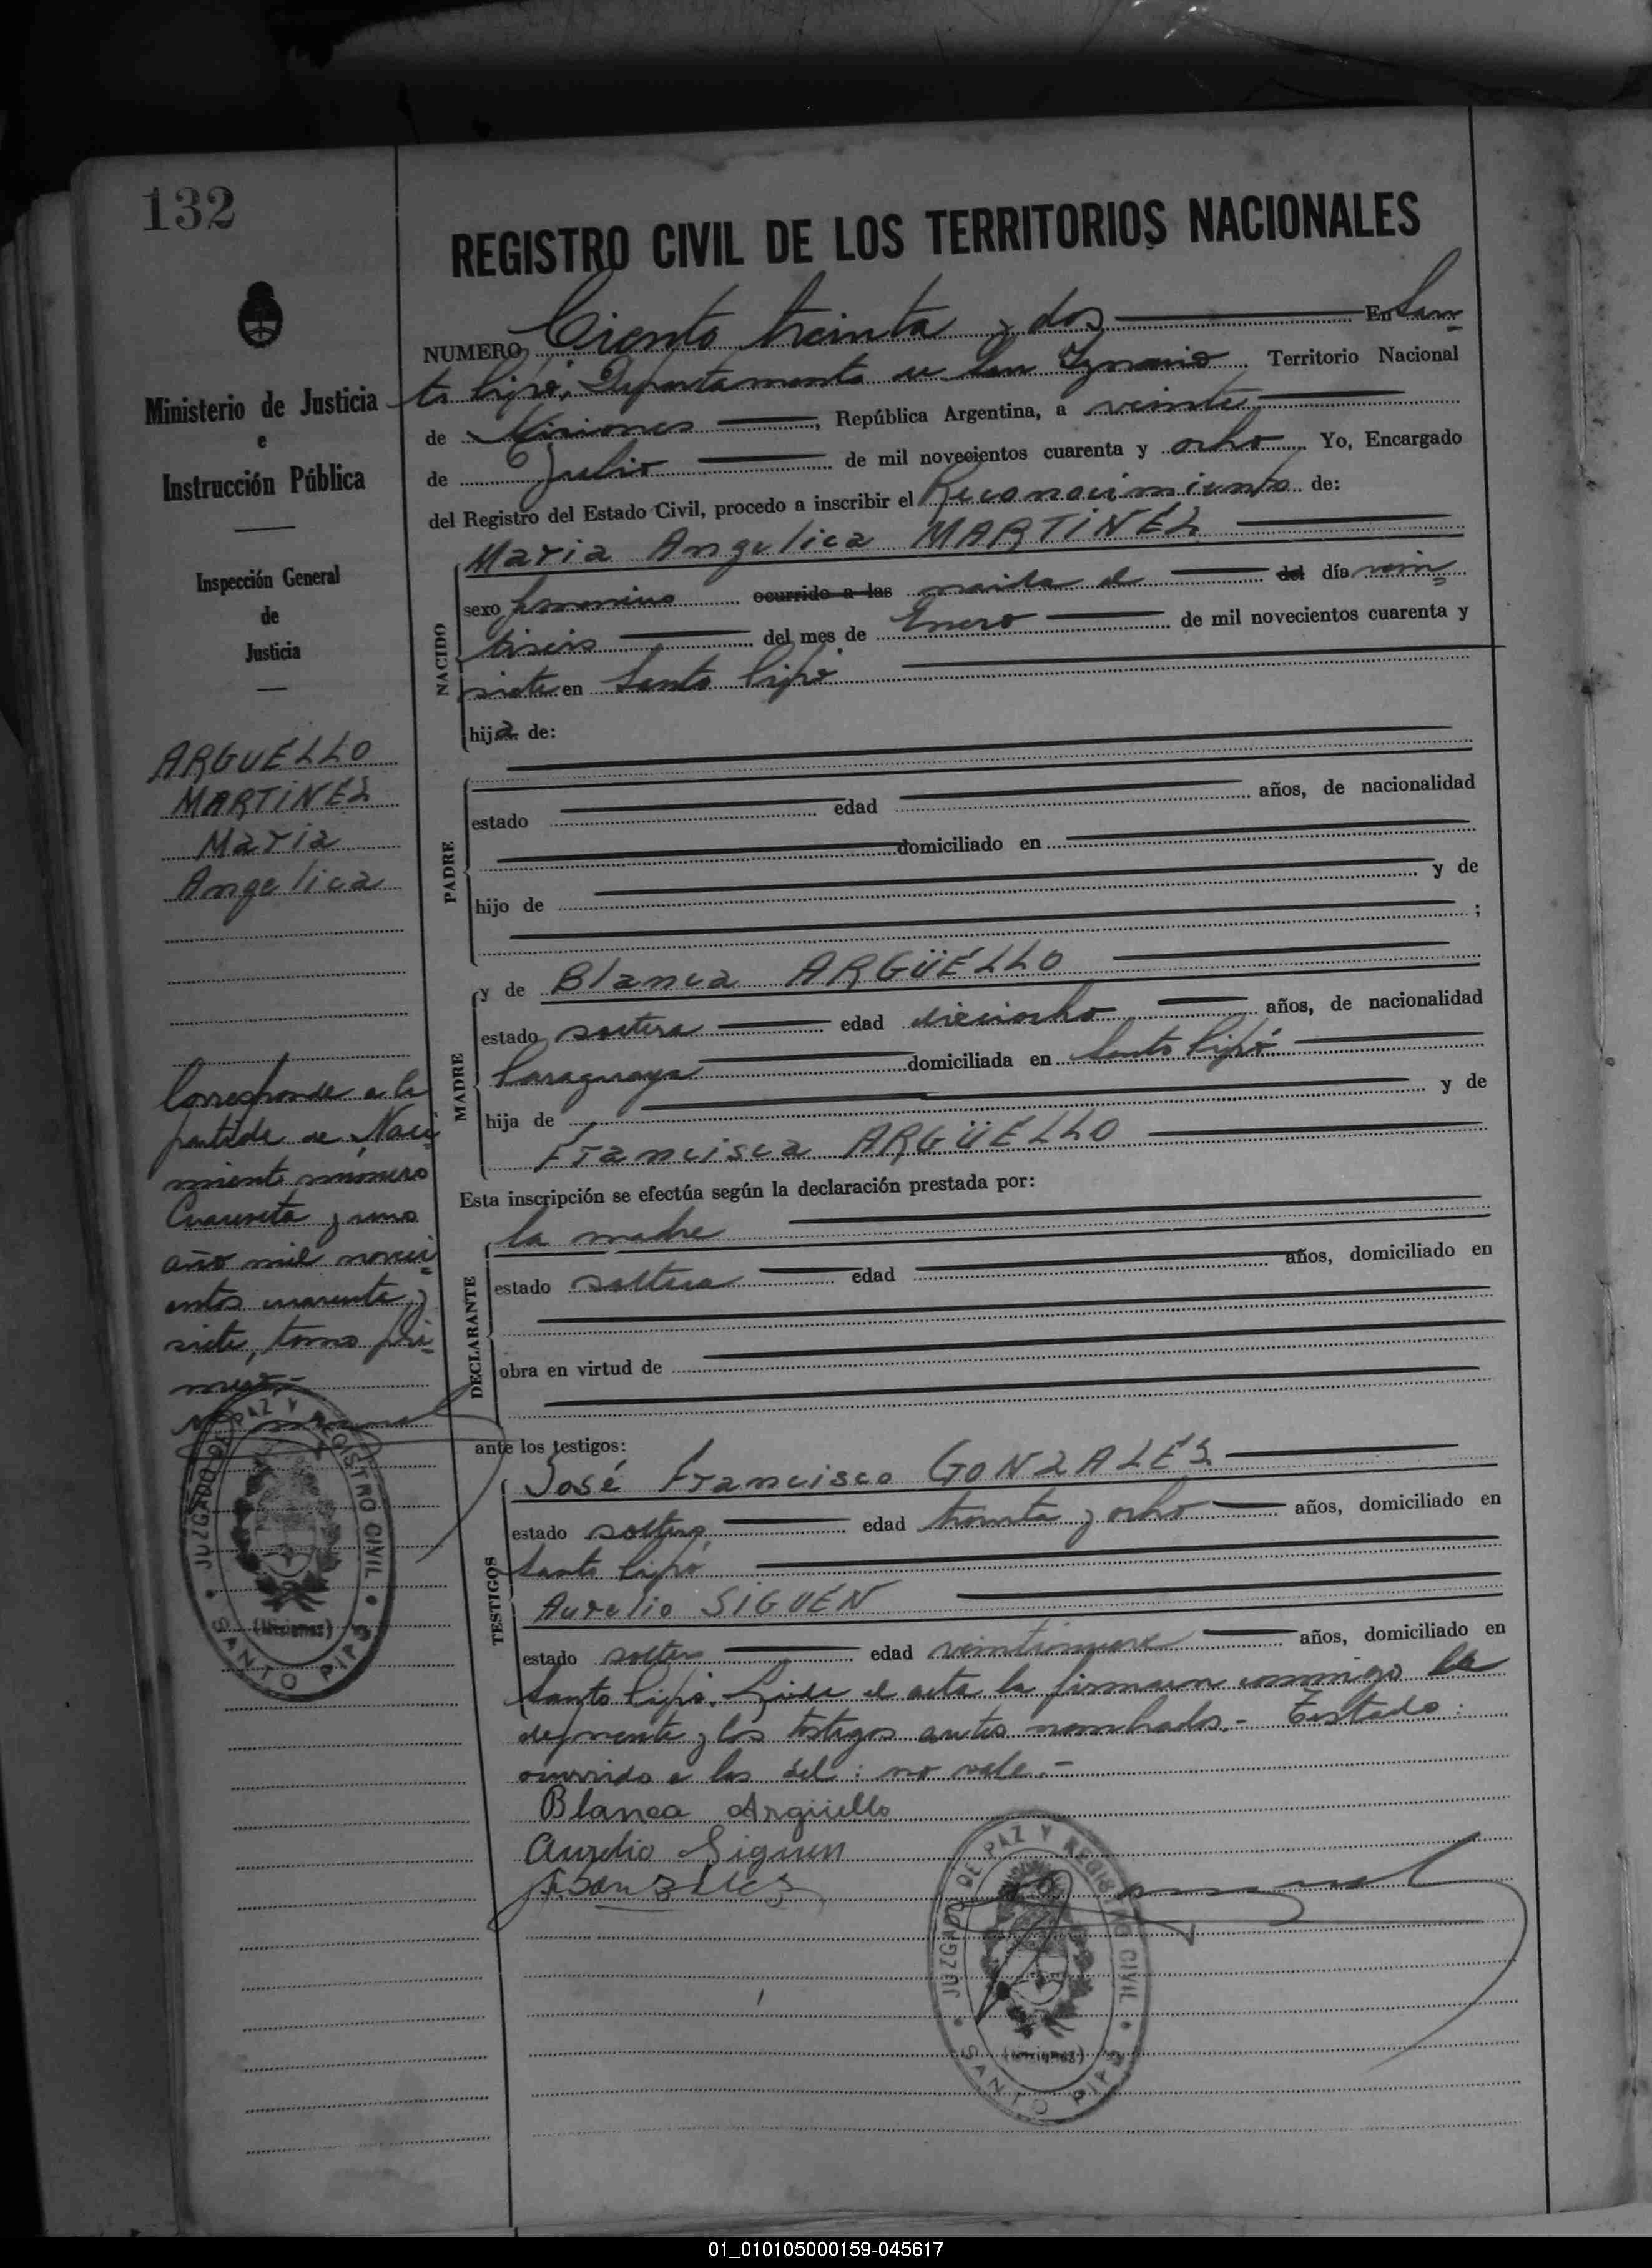 132
Ministerio de Justicia
e
Instrucción Pública
Inspección General
de
Justicia
ARGUELLO
MARTINEZ
Maria
Angelica
Corresponde a la
partida de Naci
miento número
Cuarenta y uno
año mil noveci
entos cuarenta y
siete, tomo pri
mero.-
JUZGADO DE PAZ Y REGISTRO CIVIL
(Misiones)
SANTO PIPÓ
REGISTRO CIVIL DE LOS TERRITORIOS NACIONALES
NUMERO Ciento treinta y dos En San
to Pipó, Departamento de San Ignacio Territorio Nacional
de Misiones, República Argentina, a veinte
de Julio de mil novecientos cuarenta y ocho Yo, Encargado
del Registro del Estado Civil, procedo a inscribir el Reconocimiento de:
Maria Angelica MARTINEZ
NACIDO
sexo femenino ocurrido a las nacida el del día vein
tiseis del mes de Enero de mil novecientos cuarenta y
siete en Santo Pipó
hija de:
PADRE
estado edad años, de nacionalidad
domiciliado en
hijo de y de
;
MADRE
y de Blanca ARGÜELLO
estado soltera edad dieciocho años, de nacionalidad
Paraguaya domiciliada en Santo Pipó
hija de y de
Francisca ARGÜELLO
Esta inscripción se efectúa según la declaración prestada por:
DECLARANTE
la madre
estado soltera edad años, domiciliado en
obra en virtud de
ante los testigos:
TESTIGOS
José Francisco GONZALES
estado soltero edad treinta y ocho años, domiciliado en
Santo Pipó
Aurelio SIGUEN
estado soltero edad veintinueve años, domiciliado en
Santo Pipó. Leida el acta la firman conmigo la
deponente y los testigos antes nombrados.- Testado:
ocurrido a las del: no vale.-
Blanca Argüello
Aurelio Siguen
JUZGADO DE PAZ Y REGISTRO CIVIL
(Misiones)
SANTO PIPÓ
01_010105000159-045617